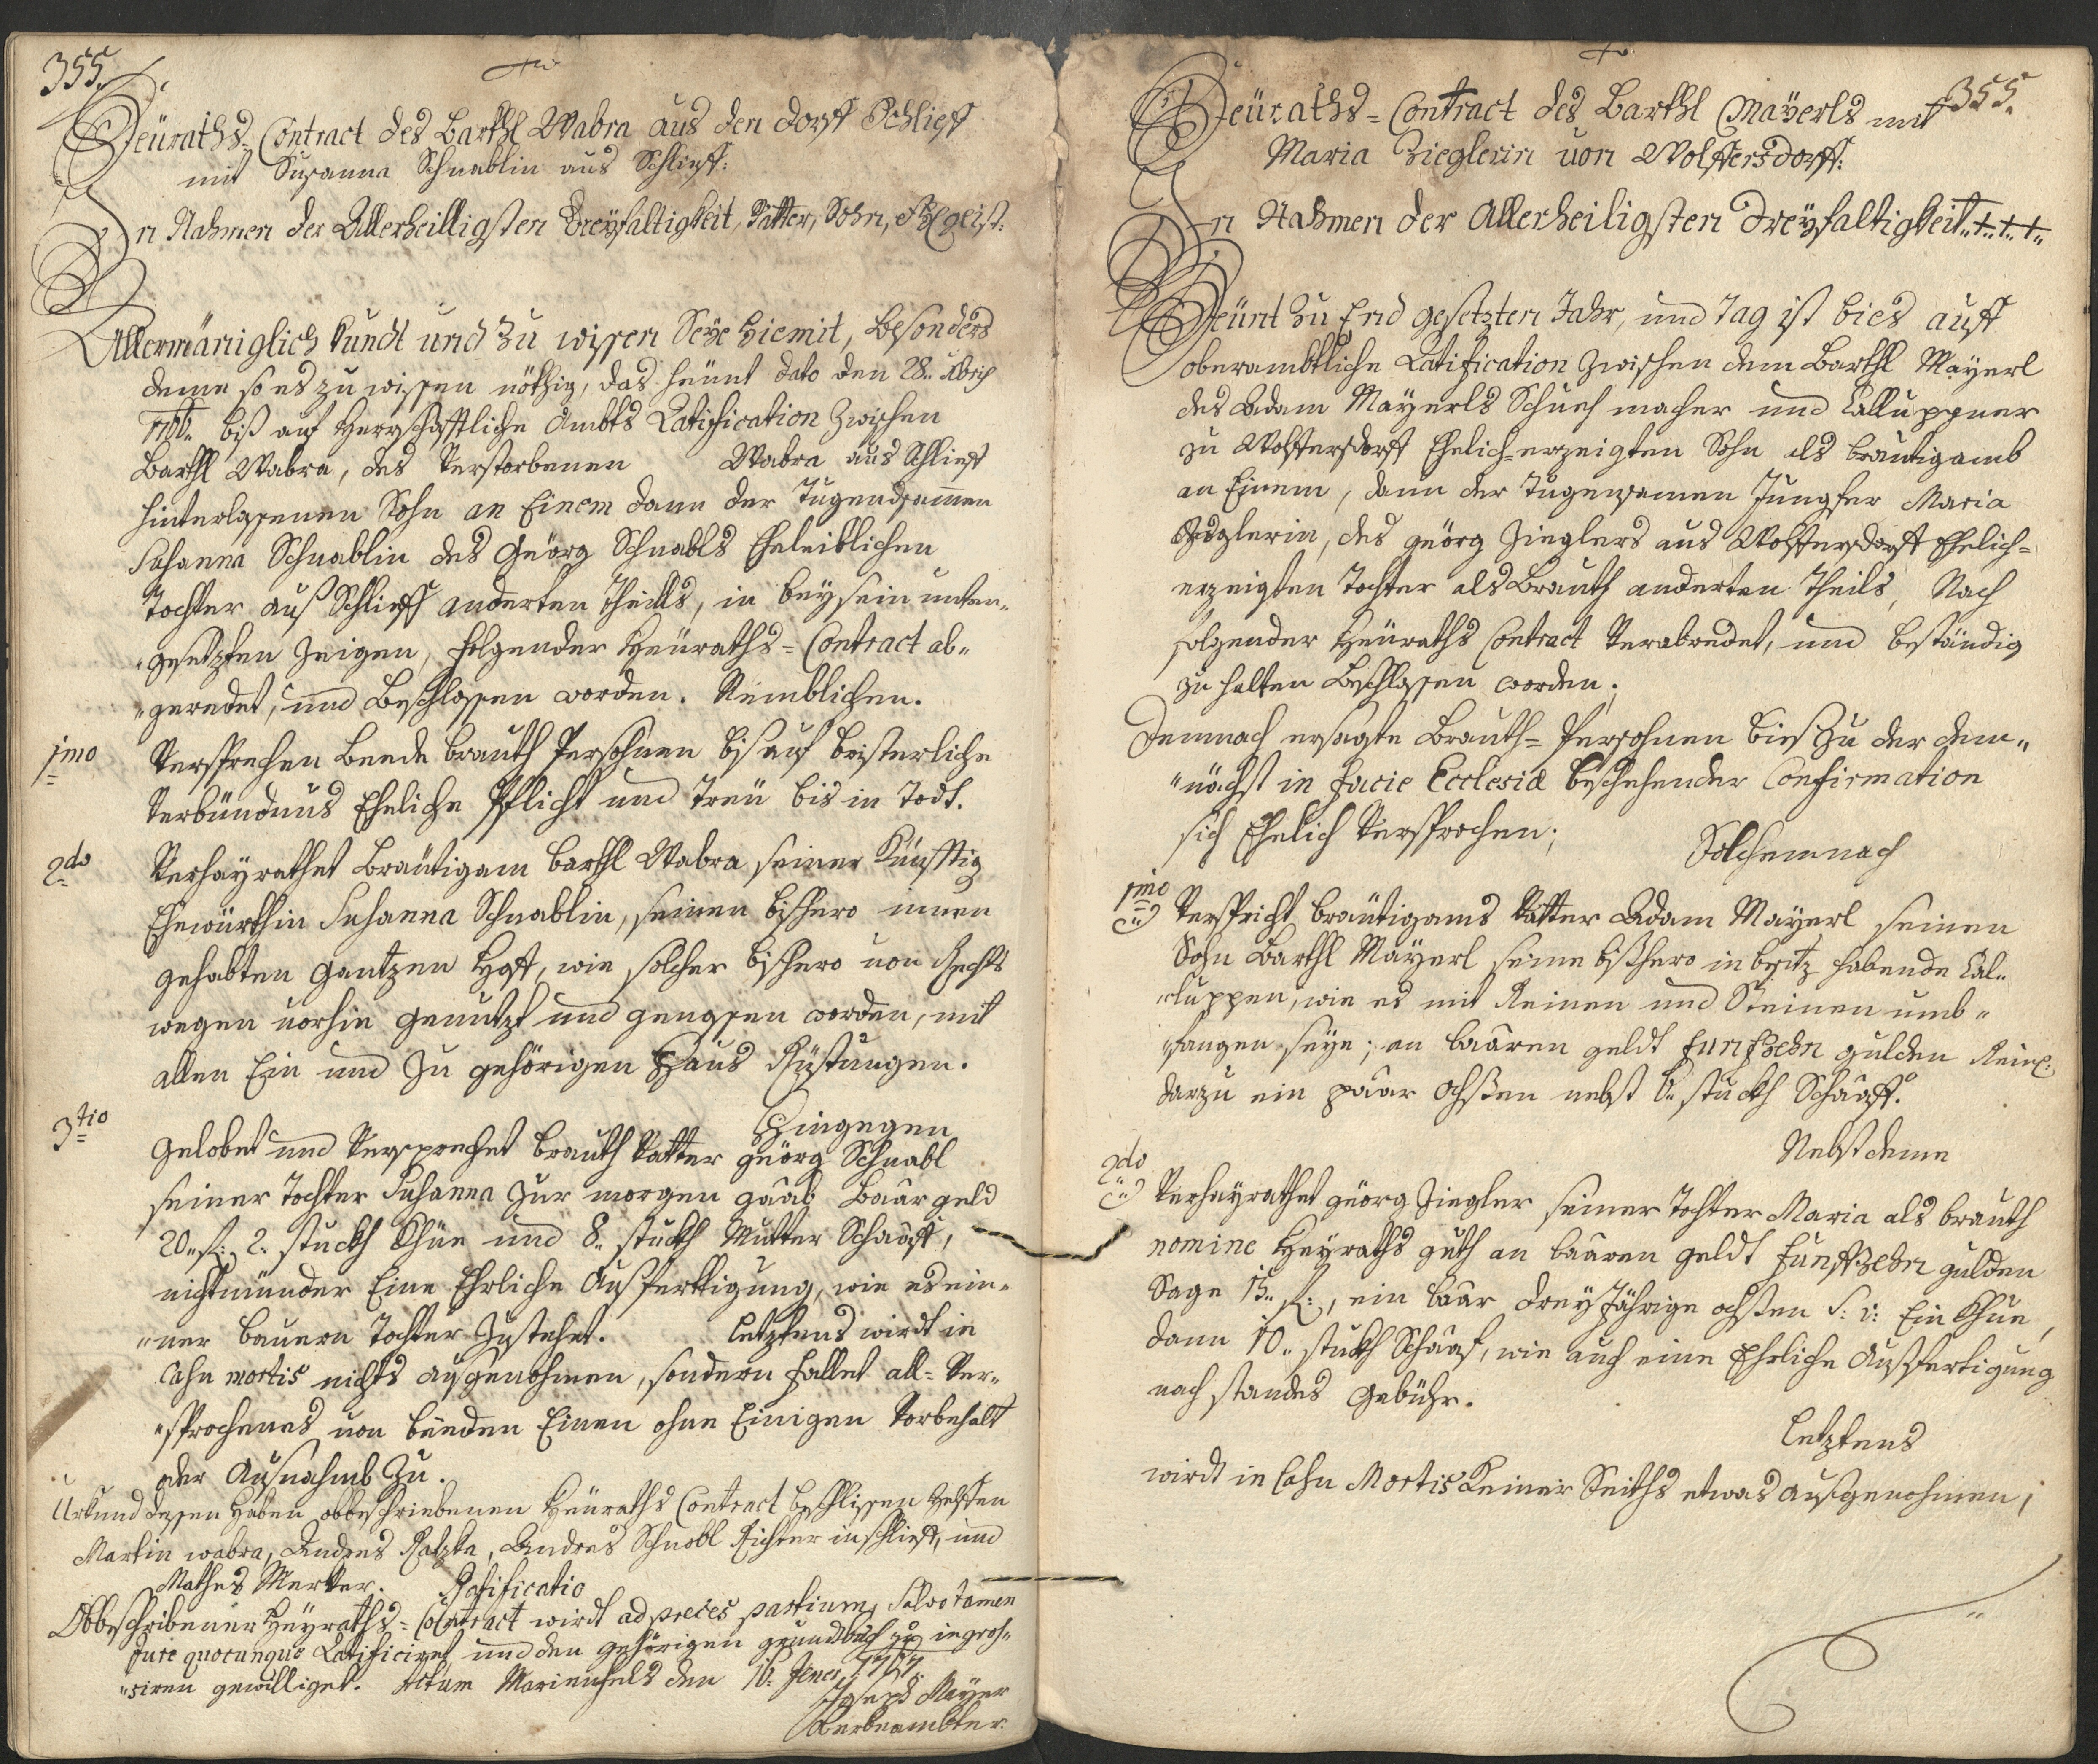 355.
Heüraths-Contract des Barthl Wabra aus den dorff Schlieff
mit Susanna Schnablin aus Schlieff:
In Nahmen der Allerheilligsten Dreyfaltigkeit, Vatter, Sohn, Geist:
Allermäniglich kundt und zu wissen Seye hiemit, besonders
deme so es zu wissen nöthig, das heunt dato den 28..
biß auf Herrschafftliche Ambts Ratification zwischen
Barthl Wabra, des Verstorbenen Wabra aus Schlieff
hinterlassenen Sohn an Einem dann der Tugendsamen
Susanna Schnablin des Geörg Schnabls Eheleiblichen
Tochter auß Schlieff anderten Theills, in beysein unten-
"gesetzten Zeigen, folgender Heüraths=Contract ab"
"geredet, und Beschlossen worden. Nemblichen.
1mo Versprechen beede brauth Persohnen bis auf
Verbündnus Eheliche Pflicht und Treü bis in Todt.
2do Verheyrathet Bräutigam Barthl Wabra seiner künfftig
Ehewürthin Susanna Schnablin, seinen bishero innen
gehabten gantzen Hoff, wie solcher bishero von Rechts
wegen vorhin genutzt und genossen worden, mit
allen Ein und Zu gehörigen Haus Rüstungen.
Hingegen
3tio Gelobet und Versprechet brauth Vatter Geörg Schnabl
seiner Tochter Susanna zur morgen gaab baar geld
20..f: 2. stuckh Khüe und 8.. stuckh Mutter Schaaff,
nichtmünder Eine Ehrliche Außferttigung, wie es ein-
"ner bauern Tochter zustehet. Letztens wirdt in
Casu mortis nichts ausgenohmen, sondern fallet all=Ver-
"sprochenes von beeden Einen ohne Einigen Vorbehalt
oder Ausnahmb zu.
Urkund dessen haben obbeschriebenen Heüraths Contract beschlissen helffen
Martin wabra, Andres, Andres Schnabl Richter in schlieff, und
Mathes Merkter. Ratificatio
Obbeschribener Heyraths=Contract wirdt ad preces partium, Salvo tamen
Jure quocunque Ratificiret und den gehörigen grundbuch zu ingros-
"siren gewilliget. Actum Marienfels den 16: Jener 1767.
Joseph Mayer
Verbeambter.
355.
Heüraths=Contract des Barthl Mayerls mit
Maria Zieglerin von Wolffersdorff:
In Nahmen der Allerheiligsten Dreyfaltigkeit..+..+..+..
Heünt zu End gesetzten Jahr, und Tag ist bies auff
oberambtliche Ratification zwischen dem Barthl Mayerl
des Adam Mayerls Schuchmacher und Calluppner
zu Wolffersdorff Ehelich=erzeigten Sohn als bräutigamb
an Einem, dann der Tugensamen Jungfer Maria
Zieglerin, des geörg Zieglers aus Wolffersdorff Ehelich=
erzeigten Tochter als Brauth anderten Theils, Nach
folgender Heüraths Contract Verabredet, und beständig
zu halten beschlossen worden;
Demnach ersagte Brauth=Persohnen bies zu der dem-
"nächst in facie Ecclesiæ beschehender Confirmation
sich Ehelich Versprochen;
Solchemnach
1mo Verspricht bräutigams Vatter Adam Mayerl seinen
Sohn Barthl Mayerl seine bißhero in besitz habende Cal-
"luppen, wie es mit Reinen und Steinen umb-
"fangen seye; an baaren geldt funfzehn gulden Rein:
darzu ein paar ochßen nebst 6.. stuckh Schaaff.
Nebst deme
2do Verheyrathet geörg Ziegler seiner Tochter Maria als brauth
nomine Heyraths guth an baaren geldt funffzehn gulden
Sage 15.. f:, ein baar drey Jährige ochßen S: v: Ein Khue,
dann 10.. stuckh Schaaf, wie auch eine Ehrliche Außfertigung
nach standes gebühr.
Letztens
wirdt in Casu Mortis Keiner Seiths etwas ausgenohmen;